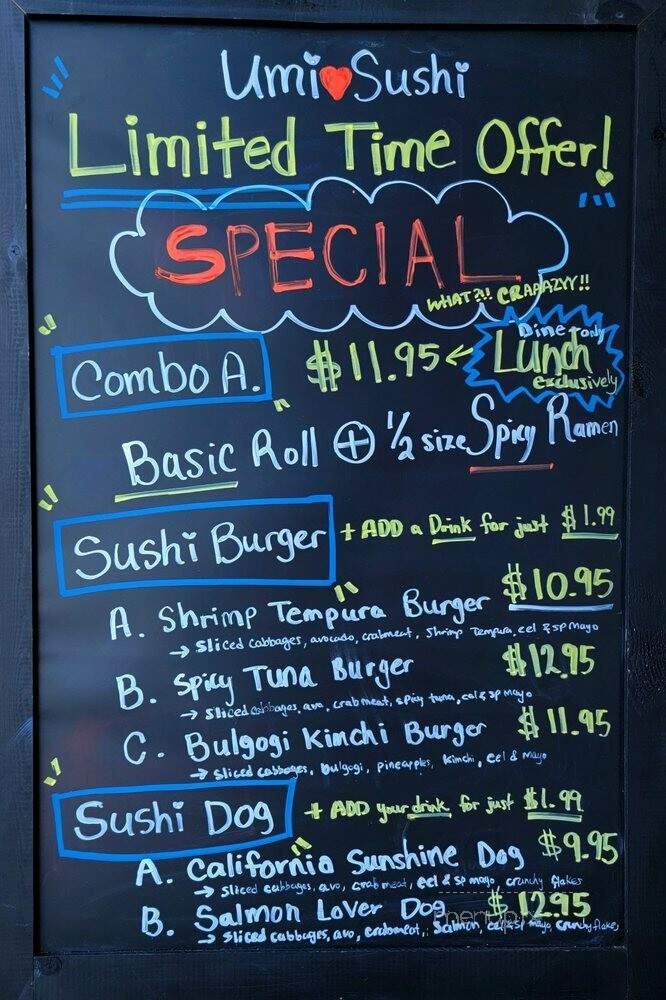 Umi Sushi
Limited Time Offer!
SPECIAL
WHAT?!! CRAAAZYY!!
Combo A. $11.95 ← Dine-only Lunch exclusively
Basic Roll + 1/2 size Spicy Ramen
Sushi Burger + ADD a Drink for just $1.99
A. Shrimp Tempura Burger $10.95
→ sliced cabbages, avocado, crabmeat, shrimp Tempura, eel & sp mayo
B. Spicy Tuna Burger $12.95
→ sliced cabbages, avo, crabmeat, spicy tuna, eel & sp mayo
C. Bulgogi Kimchi Burger $11.95
→ sliced cabbages, bulgogi, pineapples, kimchi, eel & mayo
Sushi Dog + ADD your drink for just $1.99
A. California Sunshine Dog $9.95
→ sliced cabbages, avo, crabmeat, eel & sp mayo crunchy flakes
B. Salmon Lover Dog $12.95
→ sliced cabbages, avo, crabmeat, salmon, eel & sp mayo, crunchy flakes